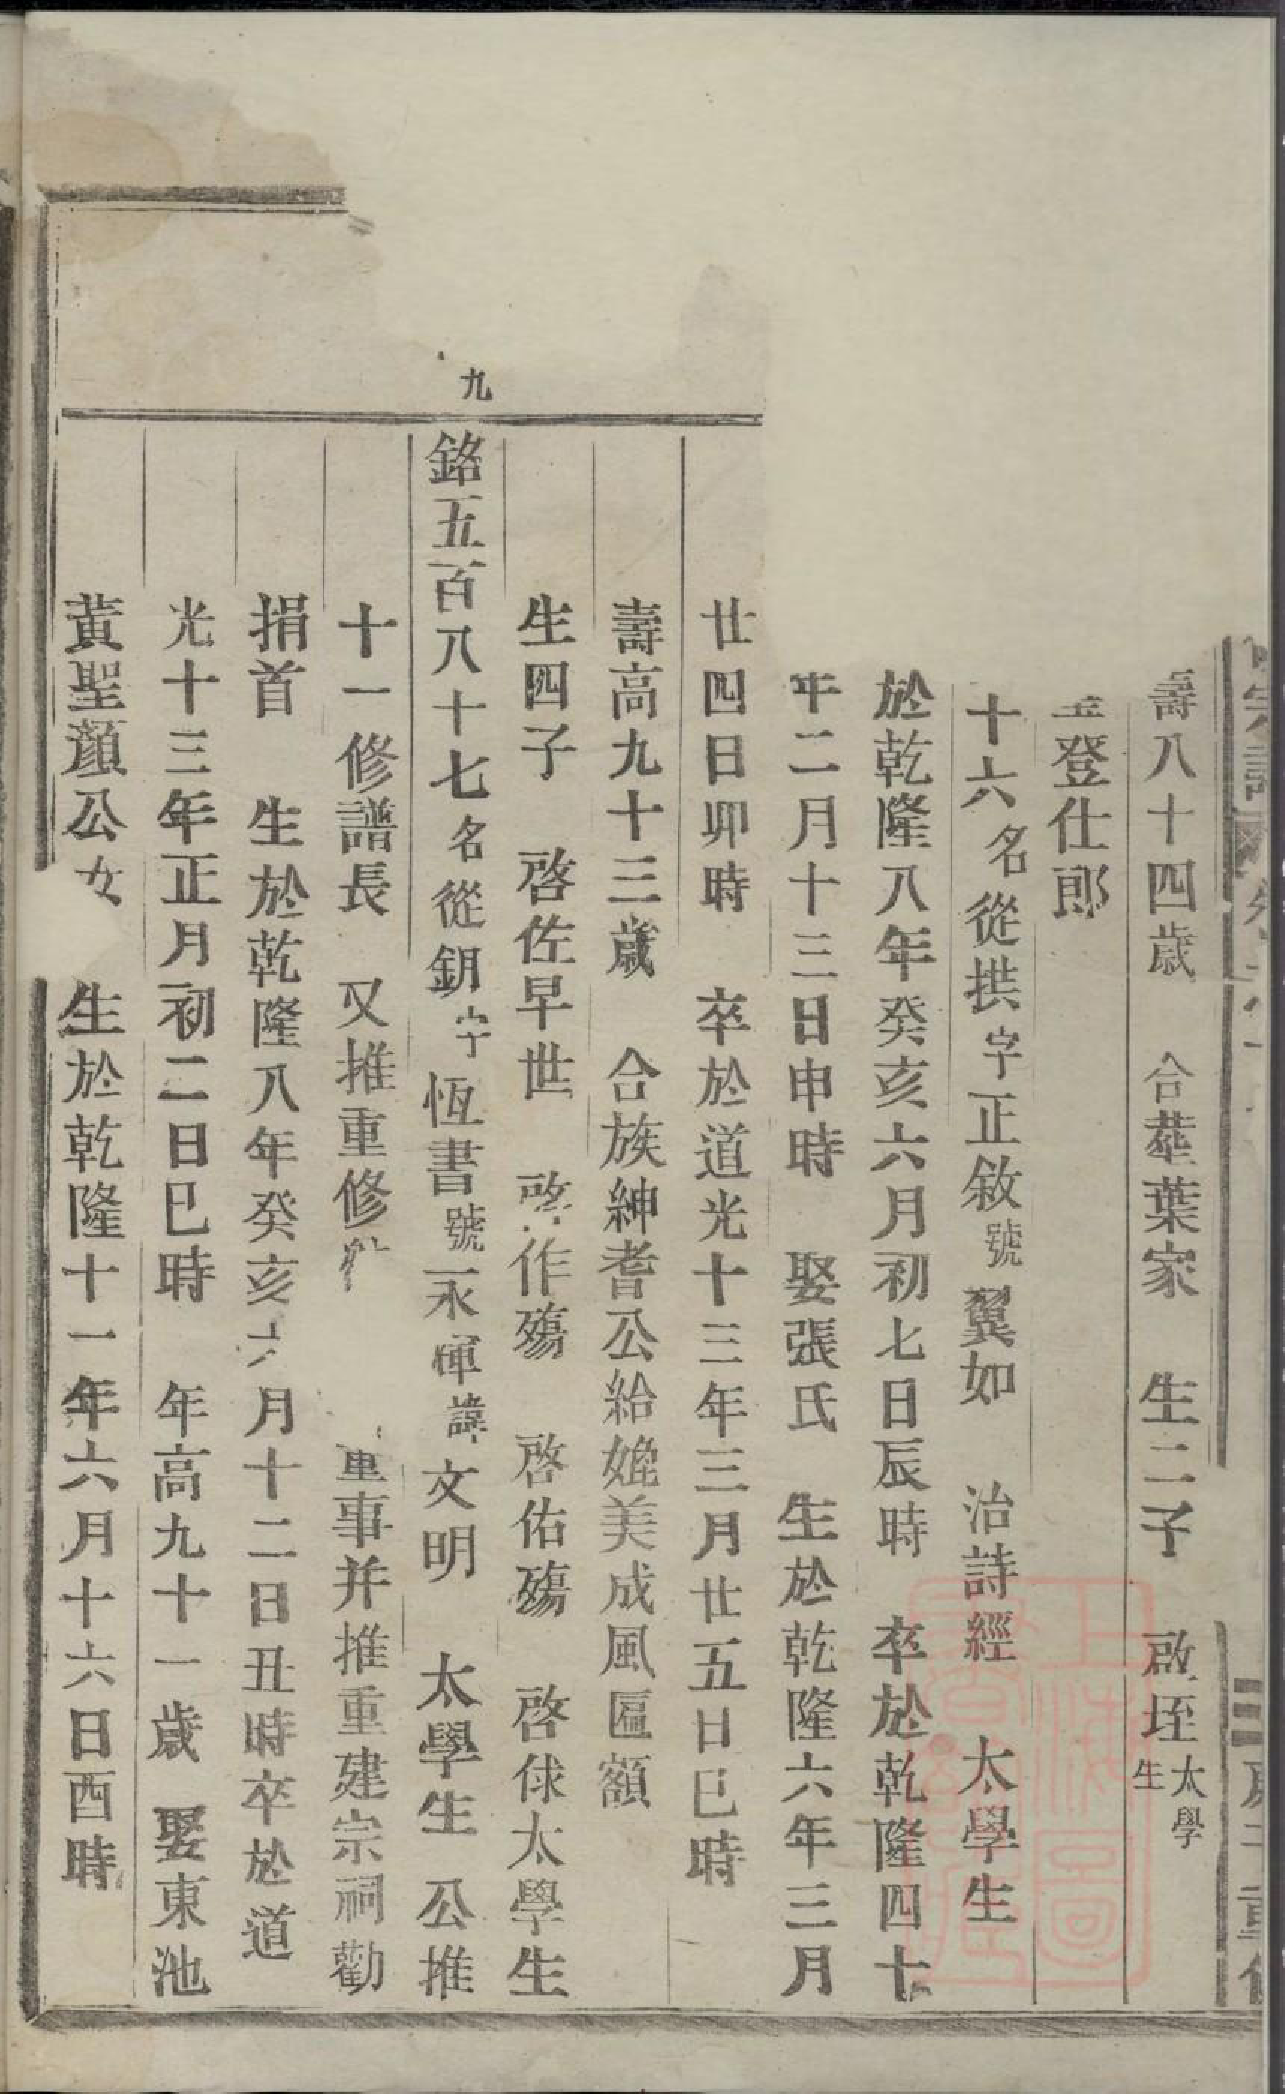 壽八十四歲 合塟葉家 生二子 啟垤太學生
登仕郎
十六名從拱字正敘號翼如 治詩經 太學生
於乾隆八年癸亥六月初七日辰時 卒於乾隆四十
年二月十三日申時 娶張氏 生於乾隆六年三月
廿四日卯時 卒於道光十三年三月廿五日巳時
壽高九十三歲 合族紳耆公給媲美成風匾額
生四子 啓佐早世 啓作殤 啓佑殤 啓俅太學生
九
銘五百八十七名從鈅字恆書號永暉諱文明 太學生 公推
十一修譜長 又推重修 董事并推重建宗祠勸
捐首 生於乾隆八年癸亥六月十二日丑時卒於道
光十三年正月初二日巳時 年高九十一歲 娶東池
黃聖顏公女 生於乾隆十一年六月十六日酉時
上海圖